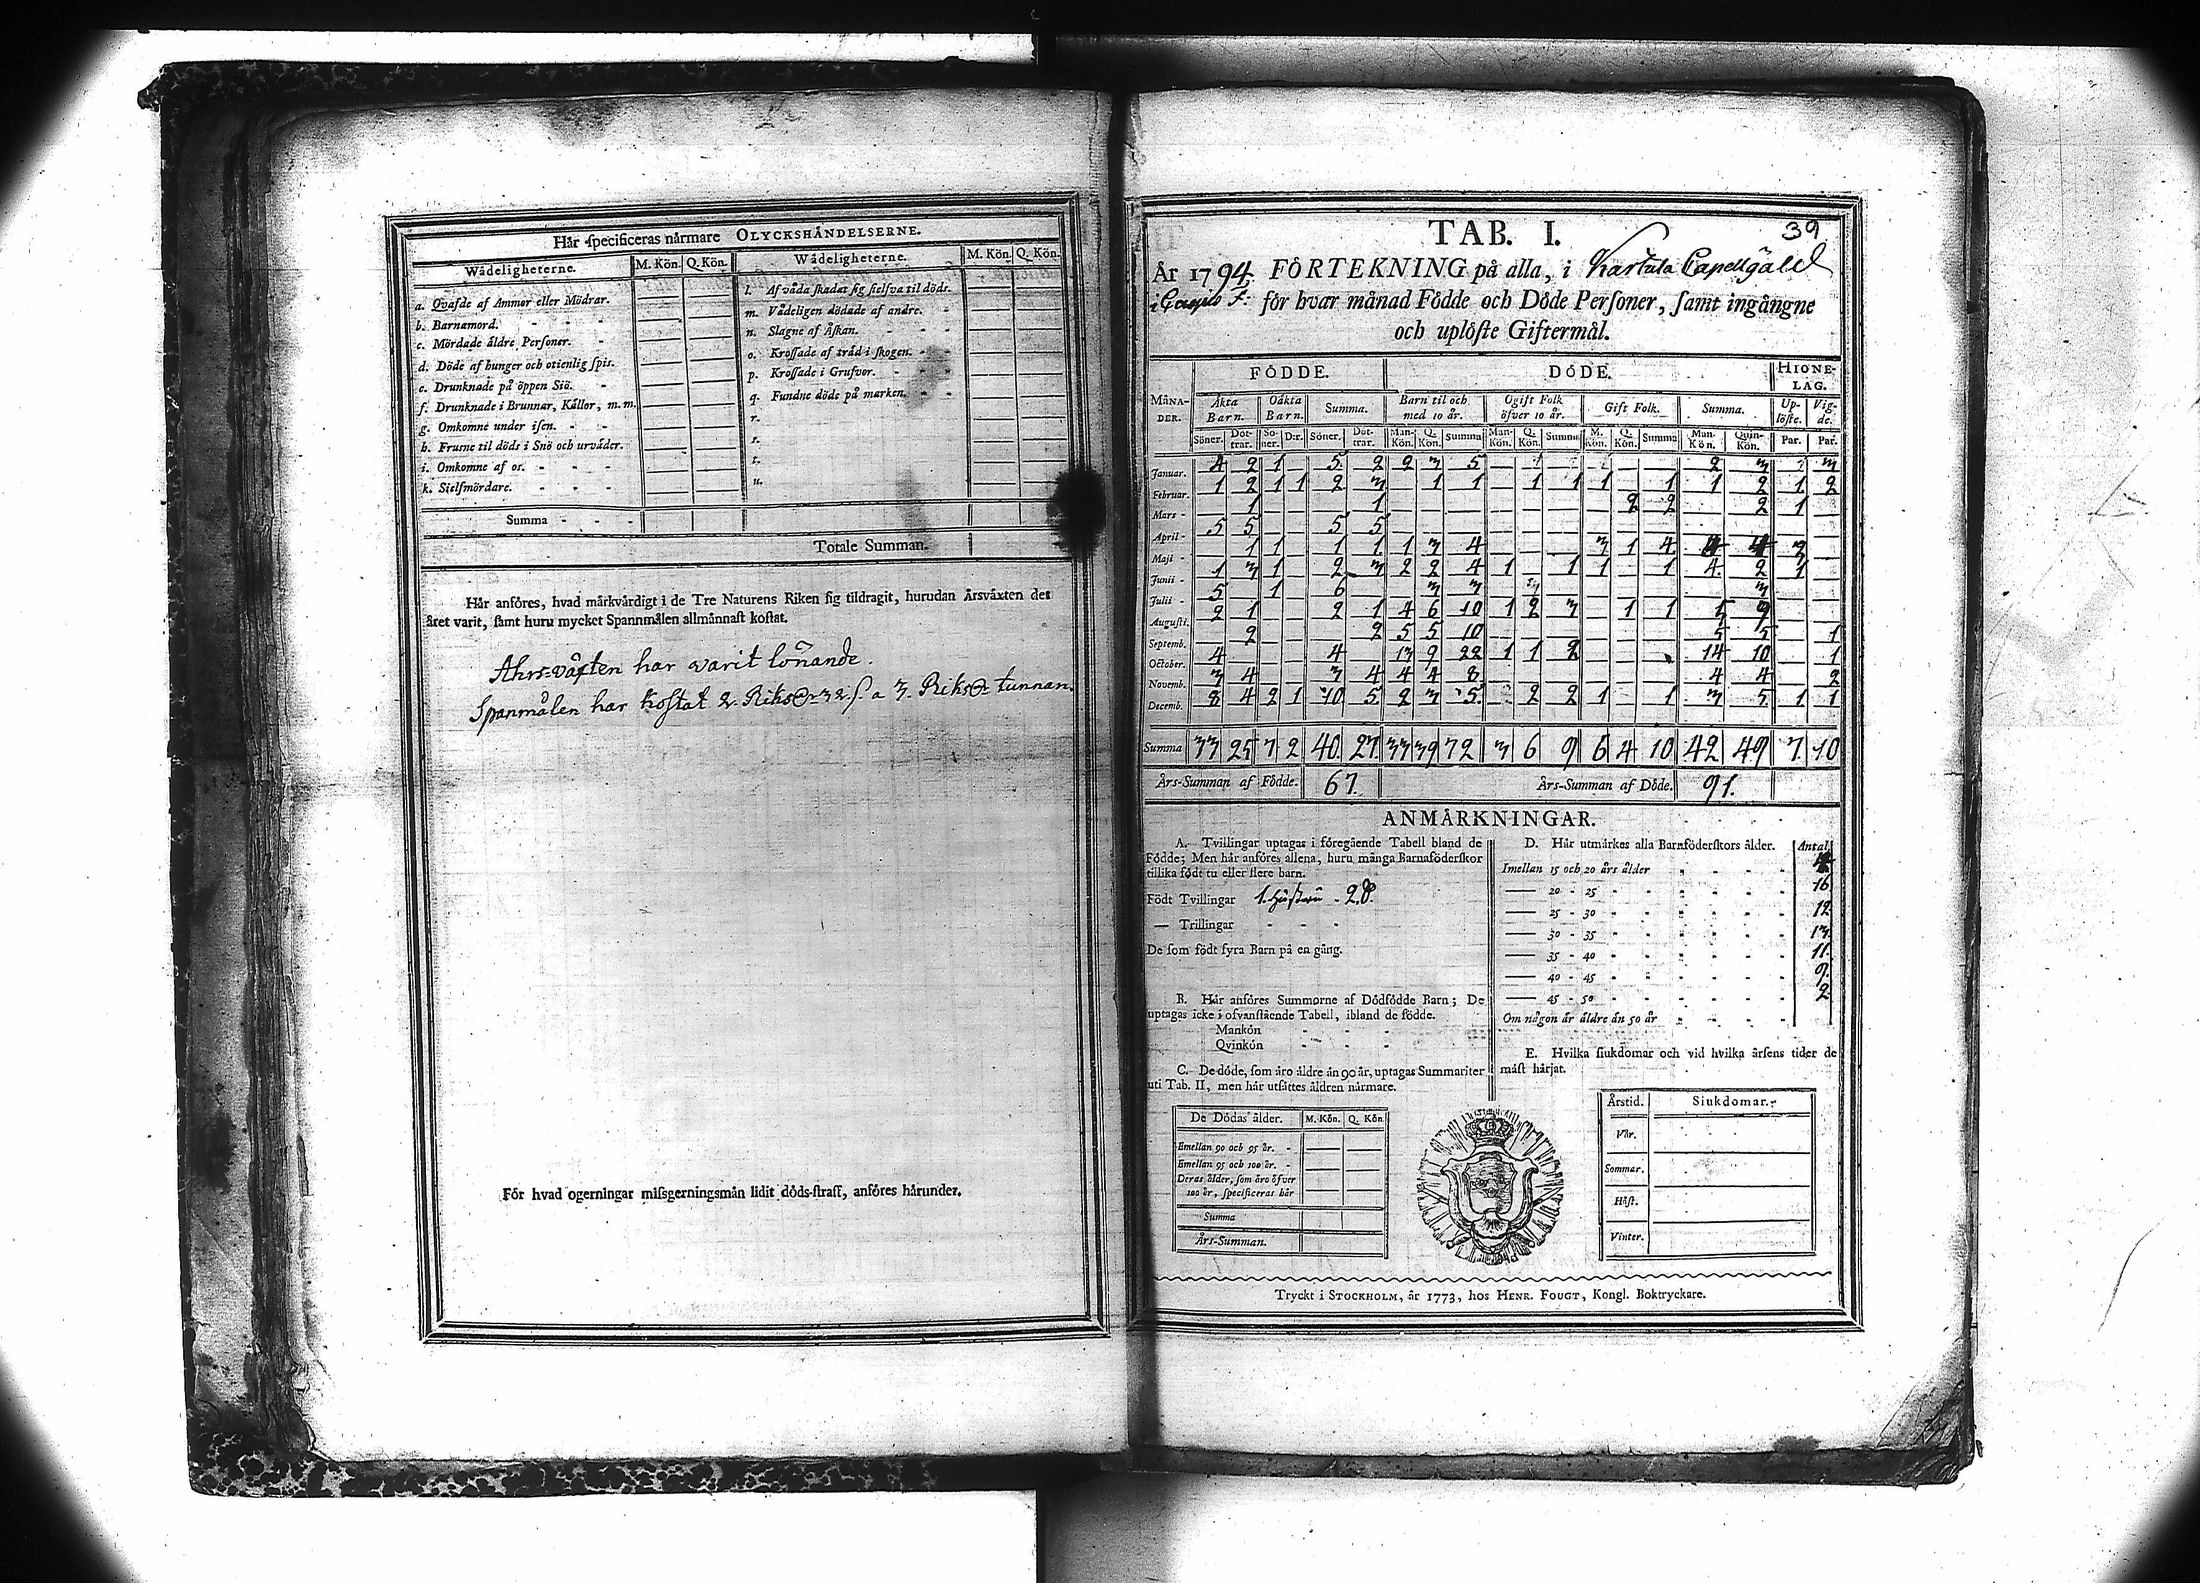 Hår specificeras nårmare OLYCKSHÅNDELSERNE.
Wådeligheterne. M. Kön. Q. Kön. Wådeligheterne. M. Kön. Q. Kön.
a. Qvafde af Ammor eller Mödrar.
b. Barnamord.
c. Mördade åldre Personer.
d. Döde af hunger och otienlig spis.
e. Drunknade på öppen Siö.
f. Drunknade i Brunnar, Kållor, m. m.
g. Omkomne under isen.
h. Frusne til döds i Snö och urvåder.
i. Omkomne af os.
k. Sielfmördare.
l. Af våda skadat sig sielfva til döds.
m. Vådeligen dödade af andre.
n. Slagne af Åskan.
o. Krossade af tråd i skogen.
p. Krossade i Grufvor.
q. Fundne döde på marken.
r.
s.
t.
u.
Summa
Totale Summan.
Hår anföres, hvad mårkvårdigt i de Tre Naturens Riken sig tildragit, hurudan Årsvåxten det
året varit, samt huru mycket Spannmålen allmånnast kostat.
Ahrs-våxten har varit lönande.
Spanmålen har kostat 2. Riksdr 32 s. a 3. Riksdr tunnan.
För hvad ogerningar missgerningsmån lidit döds-straff, anföres hårunder.
39
TAB. I.
År 1794, FÖRTEKNING på alla, i Karstula Capellgäld
för hvar månad Födde och Döde Personer, samt ingångne
och uplöste Giftermål.
MÅNADER. FÖDDE. DÖDE. HIONELAG.
Åkta Barn. Oåkta Barn. Summa. Barn til och med 10 år. Ogift Folk öfver 10 år. Gift Folk. Summa. Uplöste. Vigde.
Söner. Döttrar. Söner. D:r. Söner. Döttrar. Man-Kön. Q. Kön. Summa Man-Kön. Q. Kön. Summa M. Kön. Q. Kön. Summa Man-Kön. Quin-Kön. Par. Par.
Januar. 4 2 1 5 2 2 3 5 2 3 3
Februar. 1 2 1 1 2 3 1 1 1 1 1 1 1 2 1 2
Mars 1 1 2 2 2 1
April 5 5 5 5
Maji 1 1 1 1 1 3 4 3 1 4 4 4 3
Junii 1 3 1 2 3 2 2 4 1 1 1 1 4 2 1
Julii 5 1 6 3 3 3
Augusti. 2 1 2 1 4 6 10 1 2 3 1 1 5 9
Septemb. 2 2 5 5 10 5 5 1
October. 4 4 13 9 22 1 1 2 14 10 1
Novemb. 3 4 3 4 4 4 8 4 4 2
Decemb. 8 4 2 1 10 5 2 3 5 2 2 1 1 3 5 1 1
Summa 33 25 7 2 40 27 33 39 72 3 6 9 6 4 10 42 49 7 10
Års-Summan af Födde. 67. Års-Summan af Döde. 91.
ANMÅRKNINGAR.
A. Tvillingar uptagas i föregående Tabell bland de
Födde; Men hår anföres allena, huru många Barnaföderskor
tillika födt tu eller flere barn.
Födt Tvillingar 1. Hustru - 2. D.
— Trillingar
De som födt fyra Barn på en gång.
B. Hår anföres Summorne af Dödfödde Barn; De
uptagas icke i ofvanstående Tabell, ibland de födde.
Mankön
Qvinkön
C. De döde, som åro åldre ån 90 år, uptagas Summariter
uti Tab. II, men hår utsåttes åldren nårmare.
De Dödas ålder. M. Kön. Q. Kön.
Emellan 90 och 95 år.
Emellan 95 och 100 år.
Deras ålder, som åro öfver
100 år, specificeras hår
Summa
Års-Summan.
D. Hår utmårkes alla Barnföderskors ålder. Antal.
Imellan 15 och 20 års ålder 4
— 20 - 25 16
— 25 - 30 12
— 30 - 35 13.
— 35 - 40 11.
— 40 - 45 9.
— 45 - 50 2
Om någon år åldre ån 50 år
E. Hvilka siukdomar och vid hvilka årsens tider de
måst hårjat.
Årstid. Siukdomar.
Vår.
Sommar.
Höst.
Vinter.
Tryckt i STOCKHOLM, år 1773, hos HENR. FOUGT, Kongl. Boktryckare.